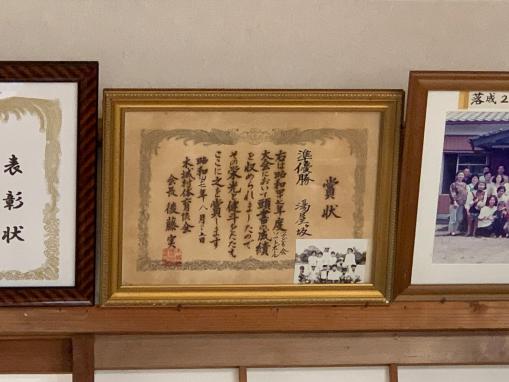 賞状
準優勝 湯美坂
右は昭和四七年度
大会において頭書の成績
を収められましたので
その栄光と健斗をたたえ
ここに之を賞します
昭和四七年八月六日
木城村体育協会
会長 後藤実
表彰状
落成2